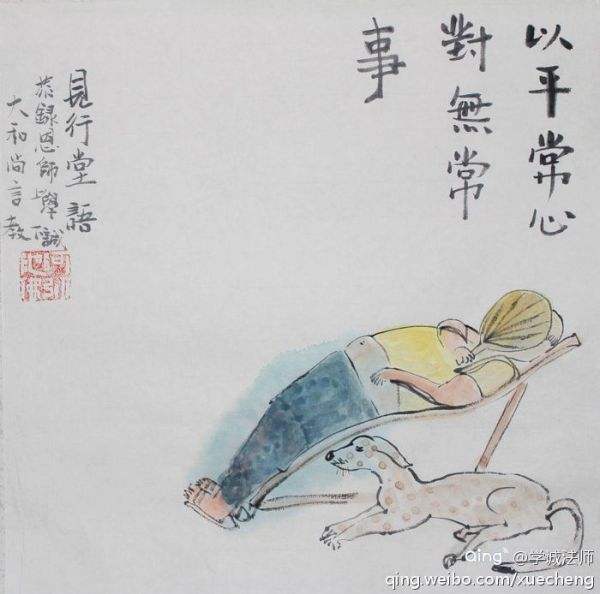 以平常心
對無常
事
見行堂語
恭録恩師學誠
大和尚言教
Qing @学诚法师
qing.weibo.com/xuecheng